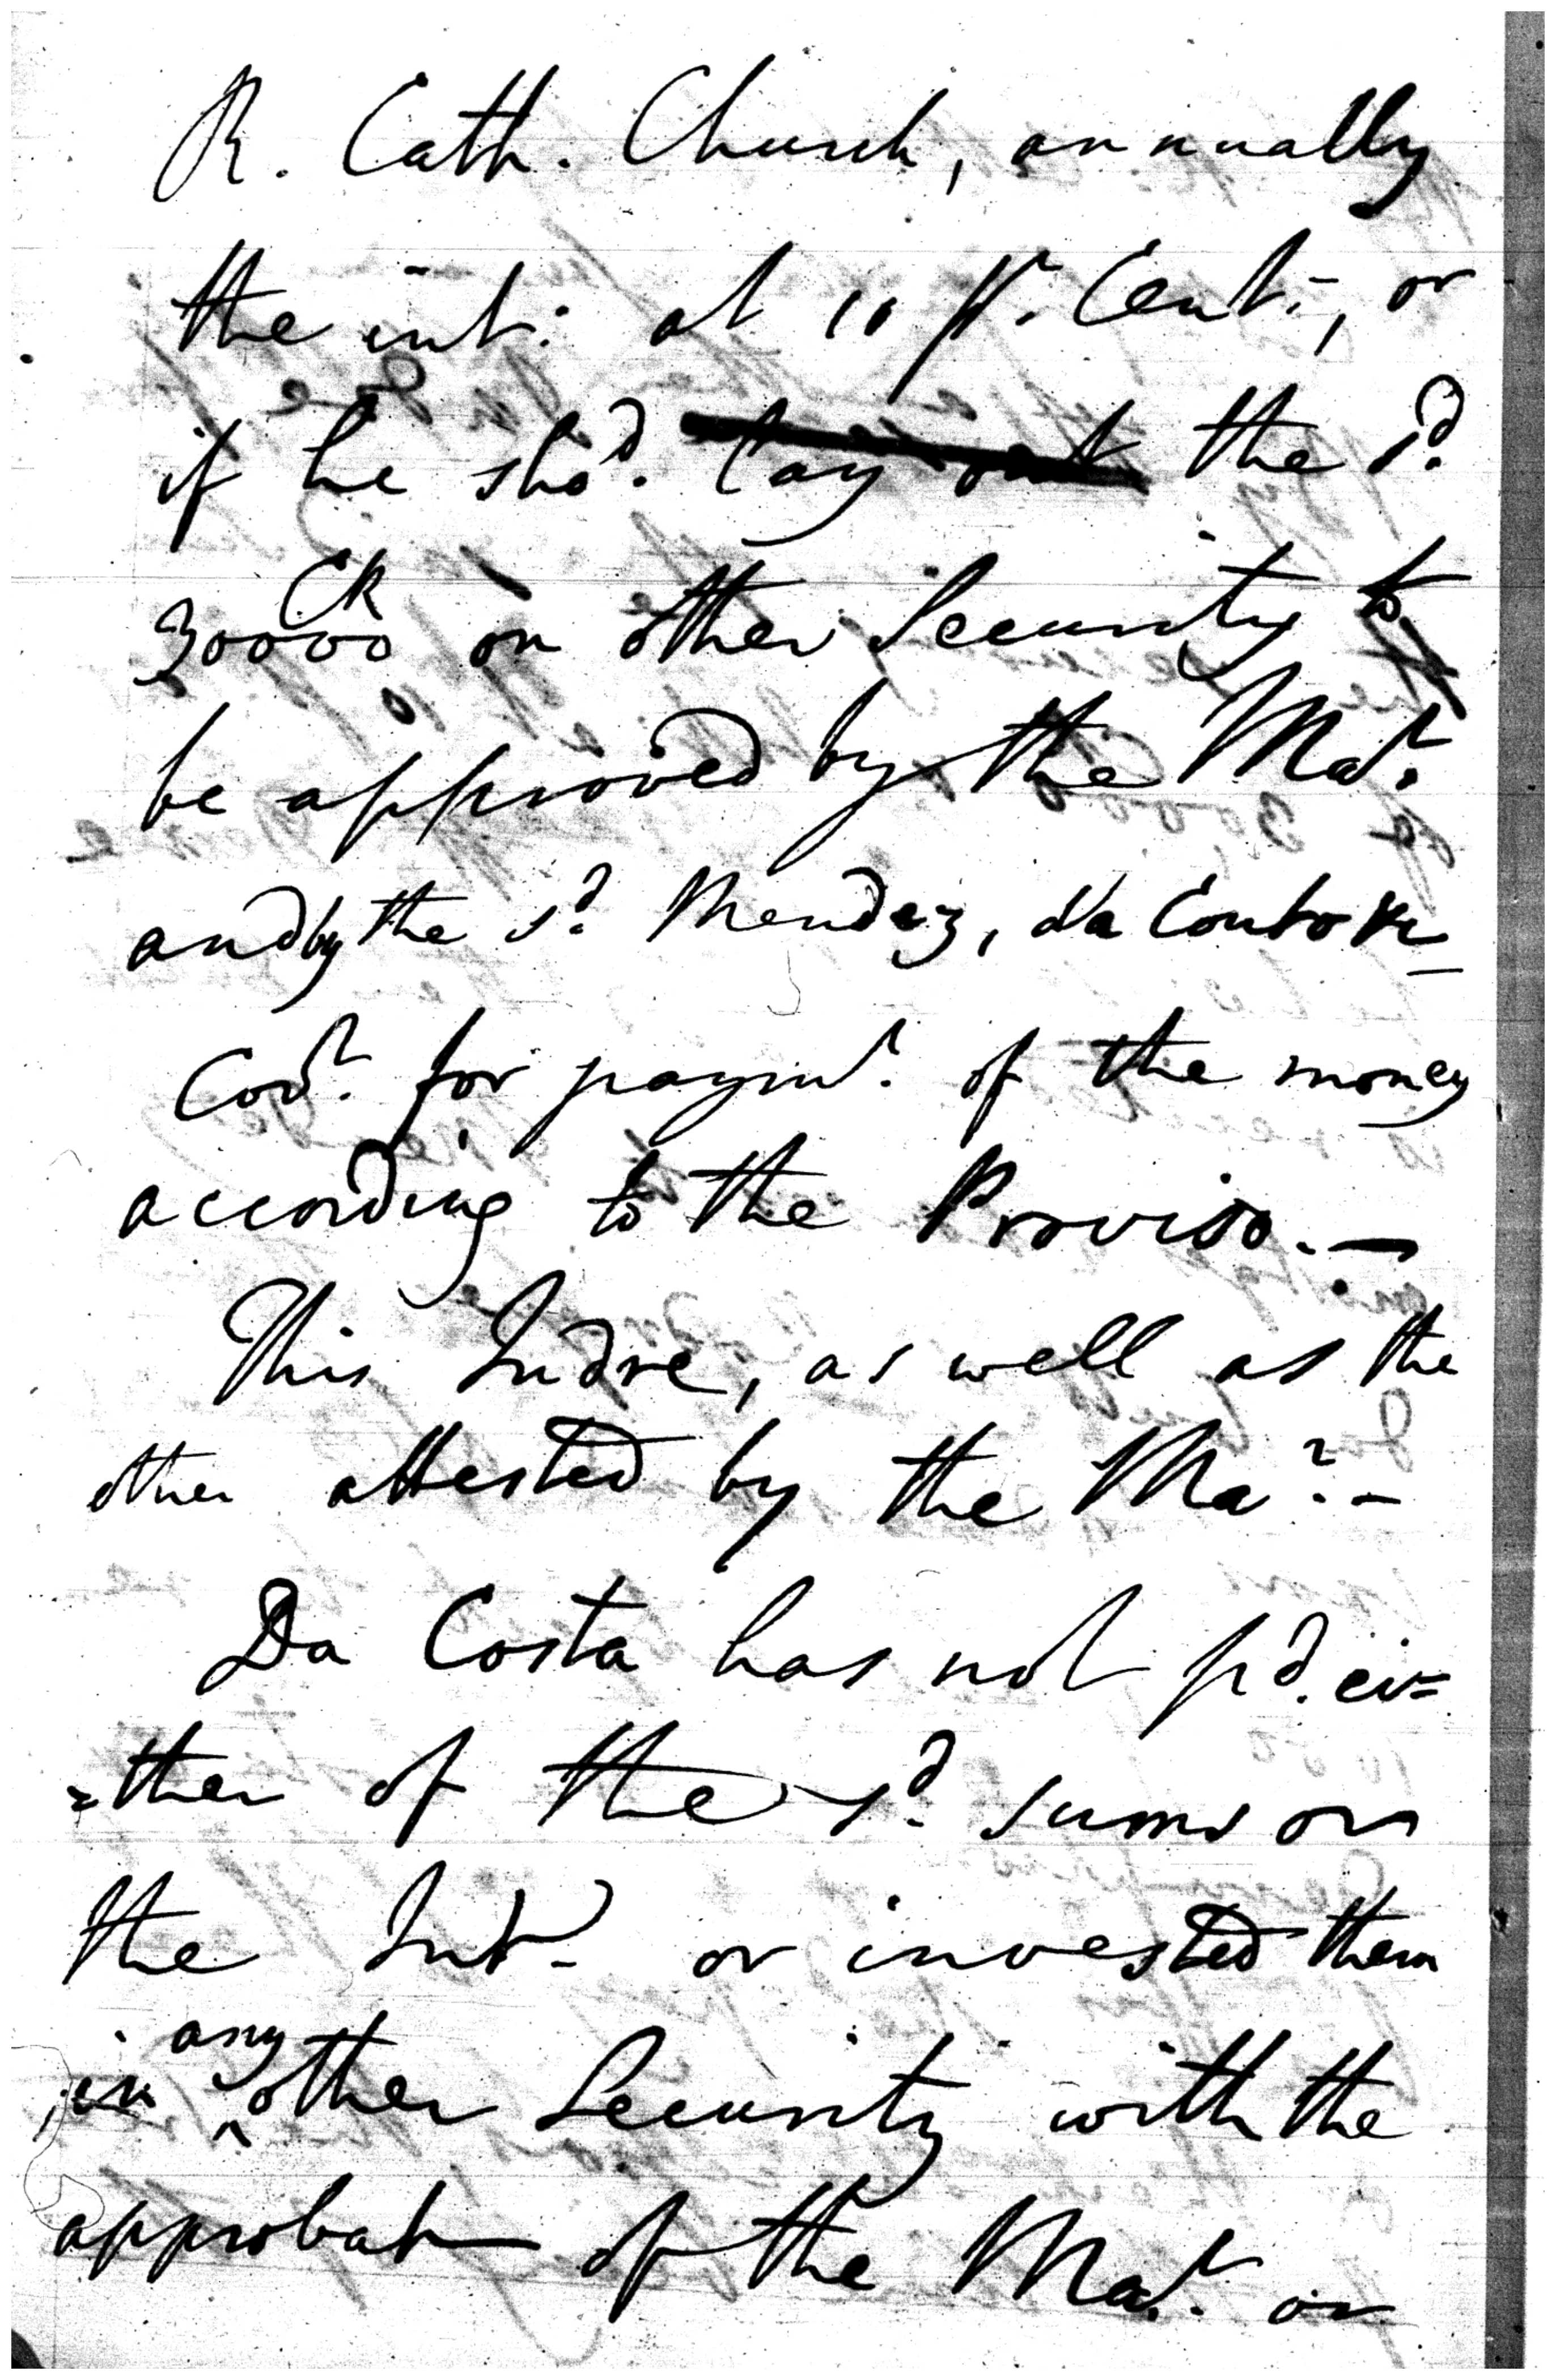 R. Cath. Church, annually
the int: at 10 pr. Cent:, or
if he shod. lay out the sd.
30000 CR on other Security to
be approved by the Mar.
and by the sd. Mendez, Da Couto
Covt. for paymt. of the money
according to the Proviso. —
This Indre, as well as the
other attested by the Mar. –
Da Costa has not pd. ei=
=ther of the sd. sums or
the Intt. or invested them
in any other Security with the
approbatn of the Mar. or